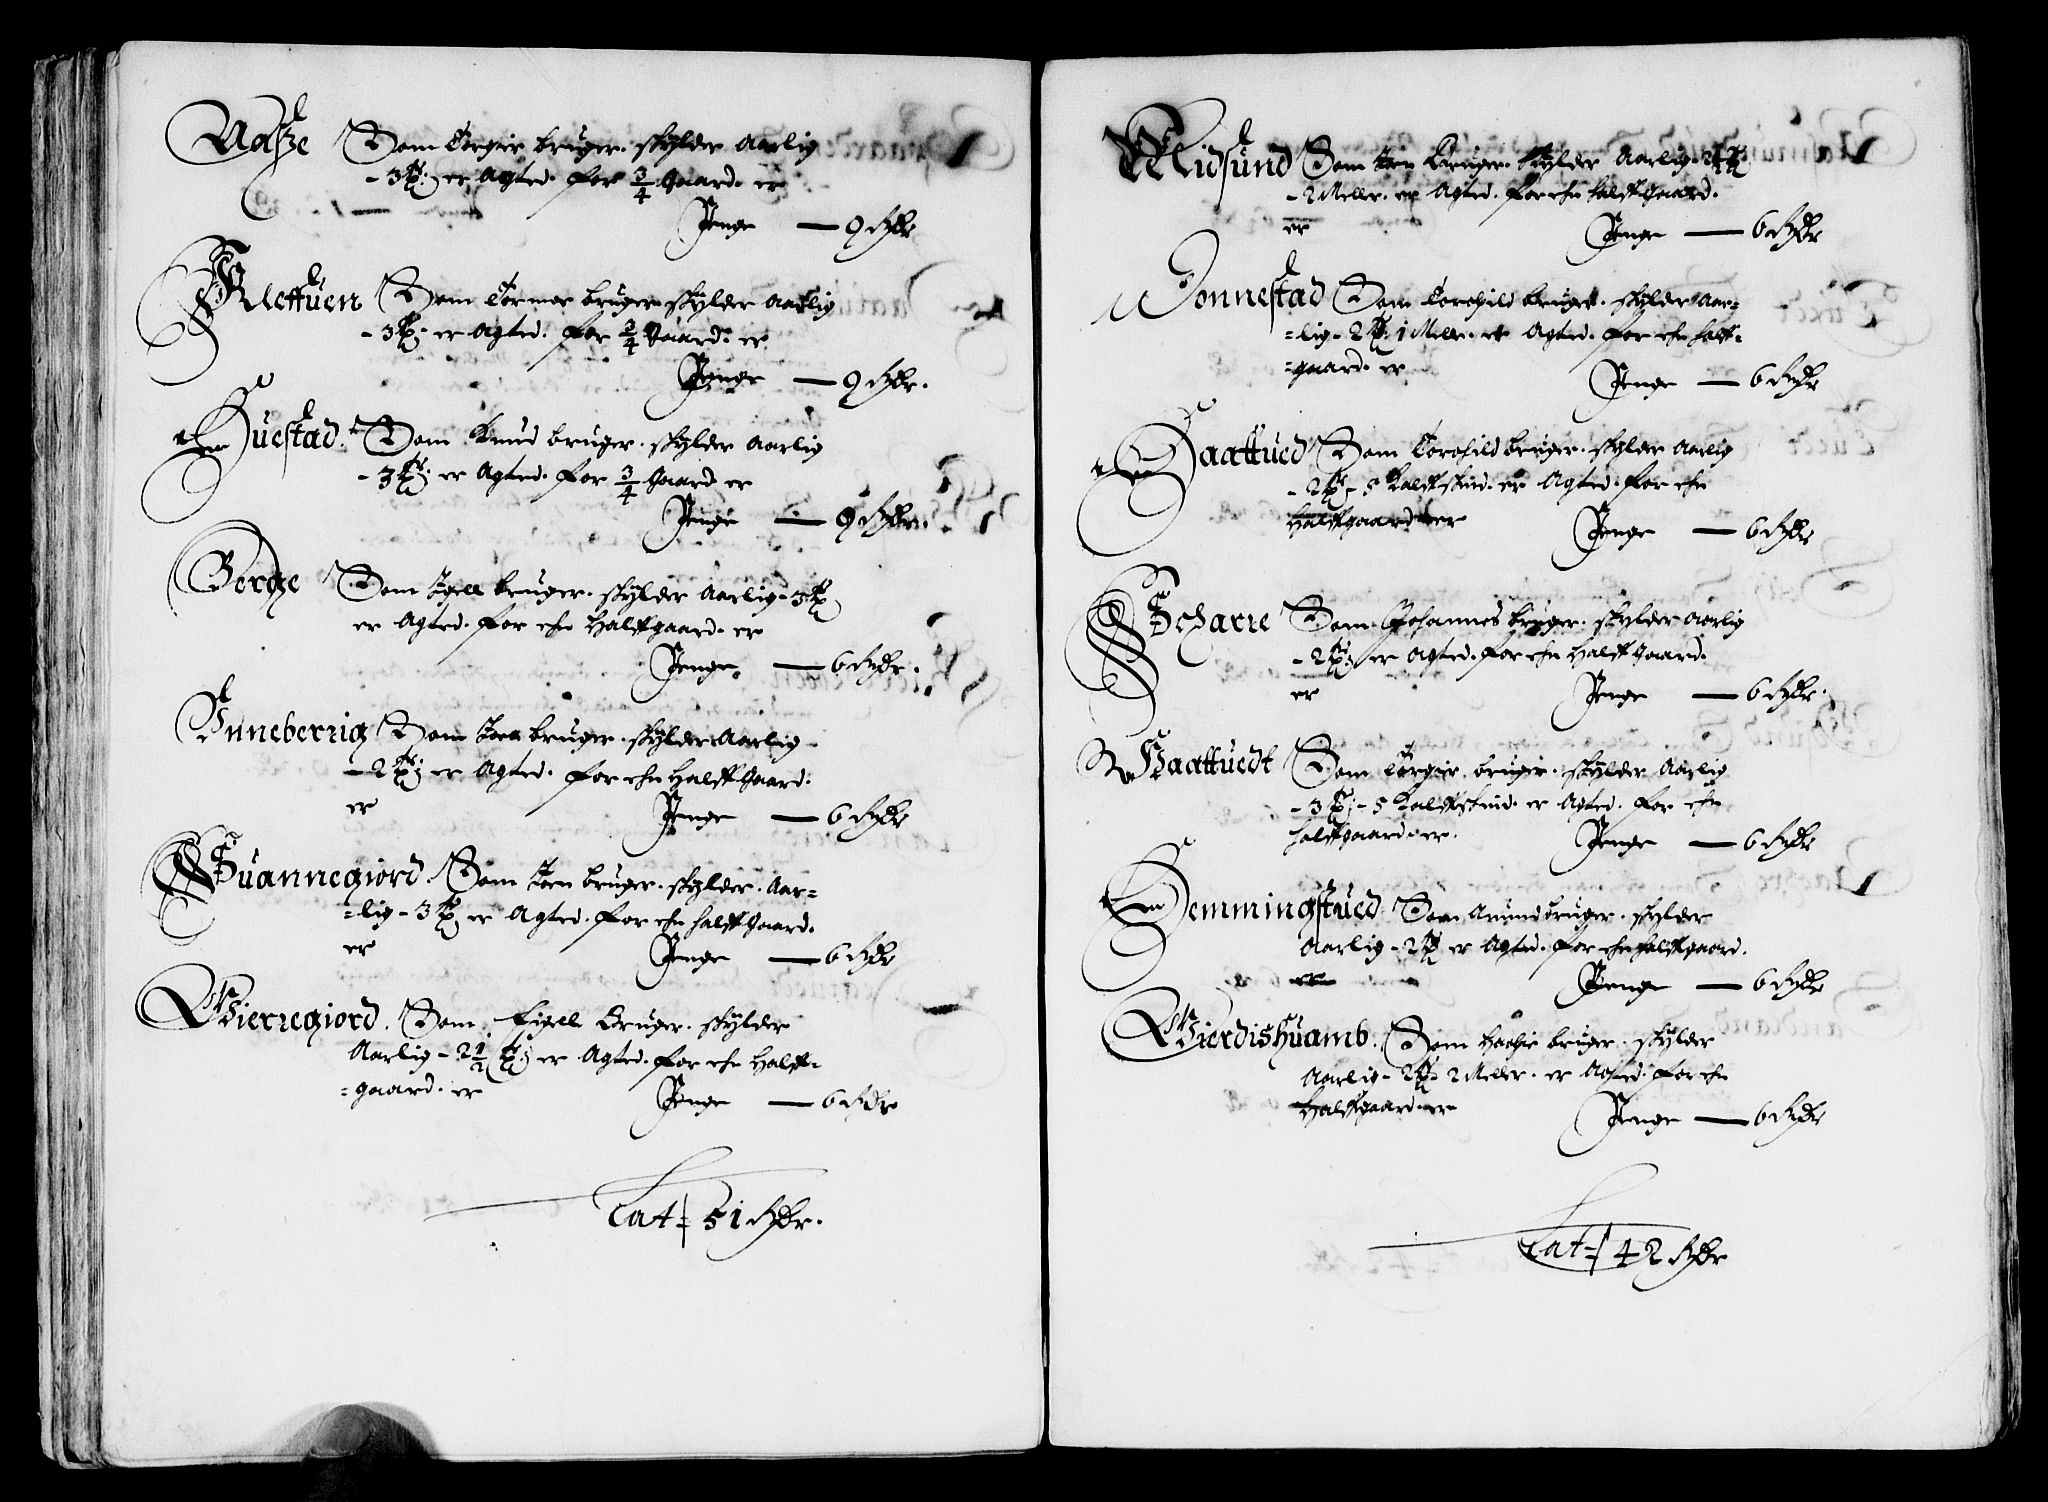 Aasze Som Torgier bruger. skylder Aarlig
- 3 ; er Agted. for 3/4 Gaard. er
Penge — 9 Rdr
Flettuen Som Tormor bruger skylder Aarlig
- 3 ; er Agted. for 3/4 Gaard. er
Penge — 9 Rdr.
Huestad. Som Knud bruger. skylder Aarlig
- 3 ; er Agted. for 3/4 Gaard er
Penge — 9 Rdr.
Berge Som Egell bruger. skylder Aarlig - 3
er Agted. for ehn Halff gaard. er
Penge — 6 Rdr.
Inneberrig Som Joen bruger. skylder Aarlig
- 2 ; er Agted. for ehn Halff Gaard.
er Penge — 6 Rdr
Suannegiord. Som Joen bruger. skylder. Aar=
=lig - 3 er Agted. for ehn halff Gaard.
er Penge — 6 Rdr
Gierregiord. Som Eigell Bruger. skylder
Aarlig - 2 1/2 ; er Agted. for ehn Halff=
=gaard. er Penge — 6 Rdr
Lat= 51 Rdr.
Midsund Som Joen Bruger. skylder Aarlig. 2
- 2 Meller. er Agted. for ehn halff Gaard.
er Penge — 6 Rdr
Sonnestad Som Torchild bruger. skylder Aar=
=lig - 2 1 Meller. er Agted. for ehn halff=
=gaard. er Penge — 6 Rdr
Haattued Som Torchild bruger. skylder Aarlig
- 2 - 5 Kalffskind. er Agted. for ehn
Halffgaard er Penge — 6 Rdr
Scharre Som Johannes bruger. skylder Aarlig
- 2 ; er Agted. for ehn Halff Gaard.
er Penge — 6 Rdr.
Haattuedt Som Torgier bruger. skylder Aarlig
- 3 ; - 5 Kalffskind. er Agted. for ehn
halffgaard. er. Penge — 6 Rdr
Hemmingstued Som Amund bruger. skylder
Aarlig - 2 er Agted. for ehn halffgaard.
er Penge — 6 Rdr
Gierdishuamb. Som bruger. skylder
Aarlig - 2 - 2 Meller. er Agted. for ehn
Halffgaard. er Penge — 6 Rdr
Lat= 42 Rdr